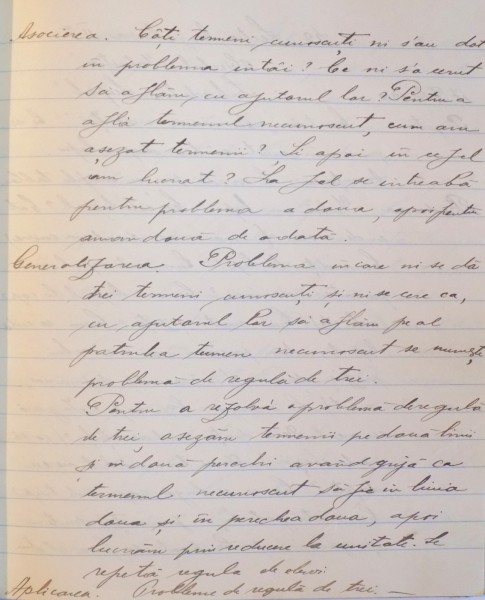 Asocierea. Câți termeni cunoscuți ni s'au dat
în problema întâi? Ce ni s'a cerut
să aflăm, cu ajutorul lor? Pentru a
aflà termenul necunoscut, cum am
așezat termenii? Și apoi în ce fel
am lucrat? La fel se întreabă
pentru problema a doua, apoi pentru
amândouă de odată.
Generalizarea. Problema în care ni se dă
trei termeni cunoscuți și ni se cere ca,
cu ajutorul lor să aflăm pe al
patrulea termen necunoscut se numește
problemă de regulă de trei.
Pentru a rezolvà o problemă de regulă
de trei, așezăm termenii pe două linii
și în două perechi având grijă ca
termenul necunoscut să fie în linia
doua și în perechea doua, apoi
lucrăm prin reducere la unitate. Se
repetă regula de elevi.
Aplicarea. Probleme de regulă de trei. —